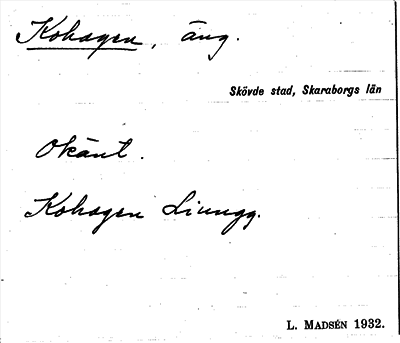 Kohagen, äng.
Skövde stad, Skaraborgs län
Okänt.
Kohagen Ljungg.
L. MADSÉN 1932.